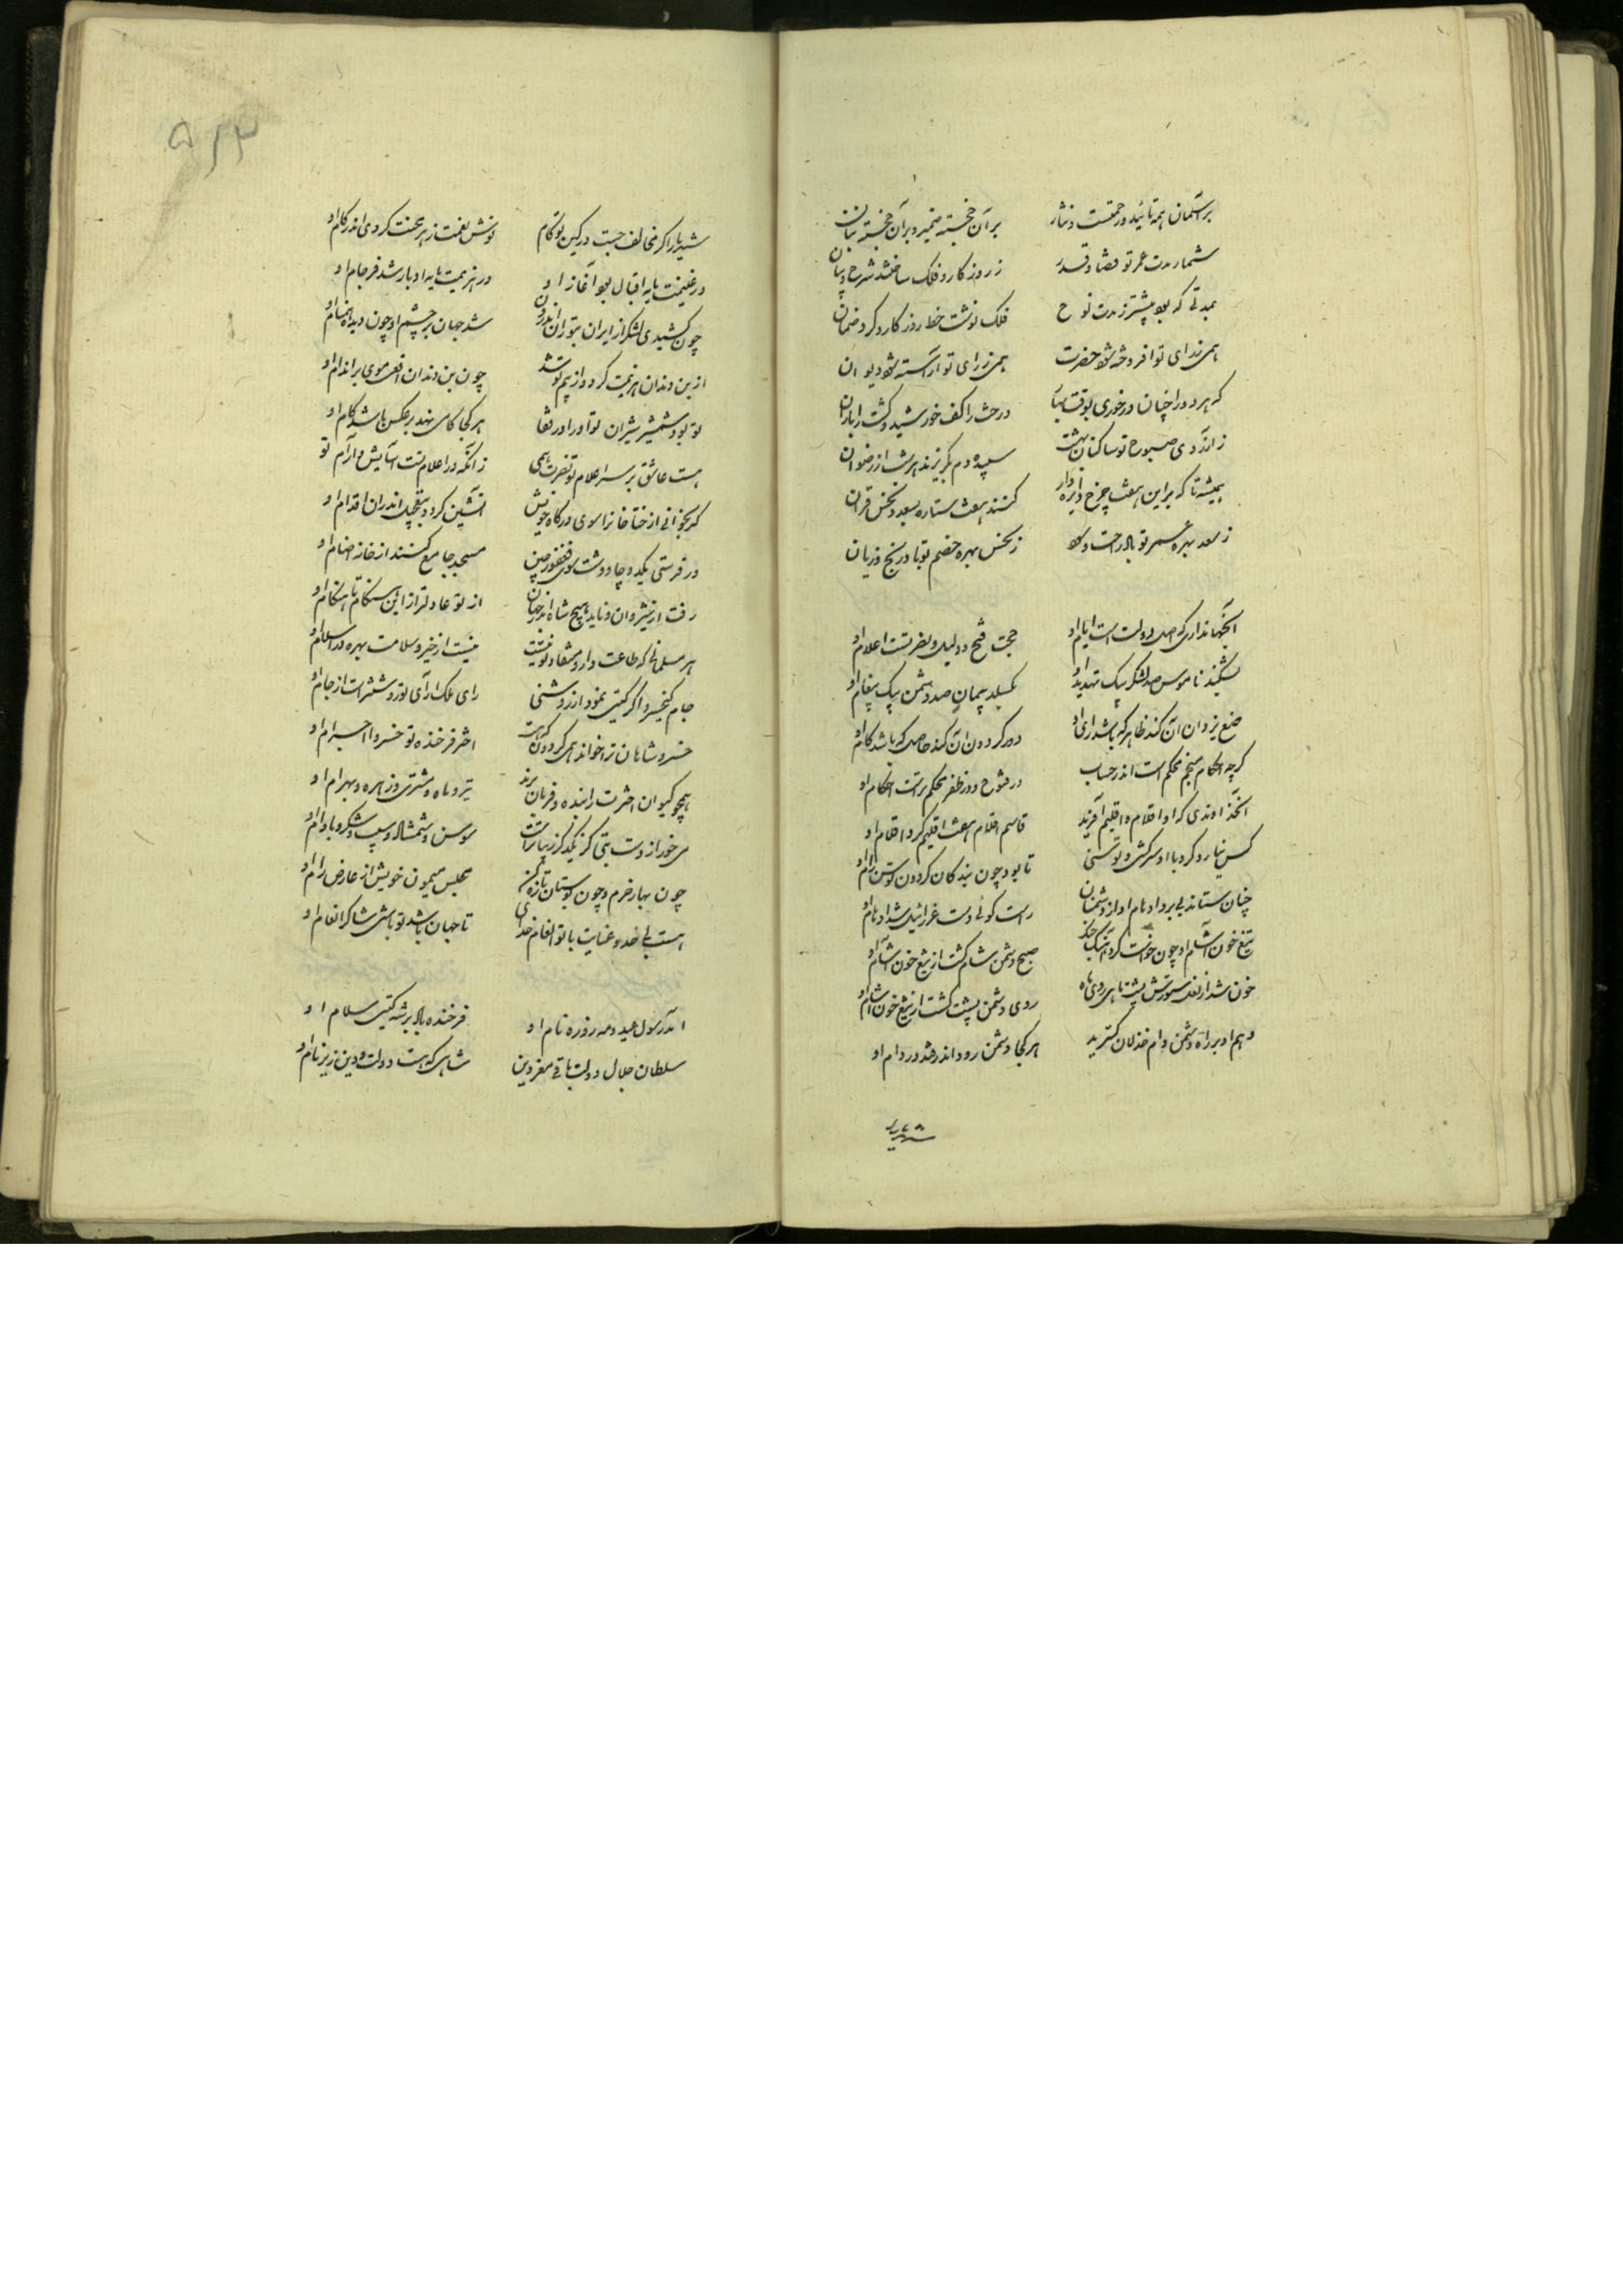 بر آسمان همه تائید و رحمتست و نثار بر آن خجسته ضمیر و بر آن خجسته بنان
شمار مدت عمر تو قضا و قدر ز روزکار و فلک ساختند شرح و بیان
بمدتی که بود پیشتر ز مدت نوح فلک نوشت خط روزکار و کرد ضمان
همی ز رای تو افروخته شود حضرت همی ز رای تو آراسته شود دیوان
که هر دو را چنان درخوری بوقت درخش را کف خورشید و کشت را باران
ز آرزوی صبوح تو ساکنان بهشت سپیده دم بگریزند هر شب از رضوان
همیشه تا که بر این هفت چرخ دایره وار کنند هفت ستاره بسعد و نحس قران
ز سعد بهره عمر تو باد راحت و سود ز نحس بهره خصم تو باد رنج و زیان
آنجهانداری که اصل دولت است ایام او حجت فتح و دلیل نصرتست اعلام او
بشکند ناموس صد لشکر بیک تهدید او بکسلد پیمان صد دشمن بیک پیغام او
صنع یزدان آن کند ظاهر که باشد رای او دور کردون آن کند حاصل که باشد کام او
کرچه احکام منجم محکم است اندر حساب در فتوح و در ظفر محکم‌تر است احکام او
آنخداوندی که او اقلام و اقلیم آفرید قاسم اقلام هفت اقلیم کرد اقلام او
کس نیارد کرد با او سرکشی و توسنی تا بود چون بندکان کردون توسن رام او
چنان ستاند بی برو او نام او از دشمنان راست کوئی دست عزرائیل شد او نام او
تیغ خون آشام او چون خواست کرد آهنک جنک صبح دشمن شام کشت از تیغ خون آشام او
خون شد از نعل ستورش پشت ماهی روی ماه روی دشمن پشت کشت از تیغ خون آشام او
وهم او بر راه دشمن دام خذلان کسترید هر کجا دشمن رود اندر فتد در دام او
شهریارا کر مخالف جست در کین تو کام نوش نعمت زهر محنت کردی اندر کام او
در غنیمت پایه اقبال بود آغاز او در هزیمت پایه ادبار شد فرجام او
چون کشیدی لشکر از ایران بتوران اندرون شد جهان بر چشم او چون دیده اقسام او
از بن دندان هزیمت کرد و از بیم تو شد چون بن دندان افعی موی بر اندام او
تو بود شمشیر شیران تو او را در قفا هر کجا کامی نهد برعکس باشد کام او
هست عاشق بر سر اعلام تو نصرت همی زانکه در اعلام تست آسایش و آرام او
کر بخوانی از ختا خانرا سوی درکاه خویش آتشین کردد بتعجیل اندران اقدام او
ور فرستی یکد و چاووشت سوی فغفور چین مسجد جامع کنند از خانه اصنام او
رفت از نوشیروان و ناید هیچ شاه اندر جهان از تو عادلتر از این هنکام تا هنکام او
هر مسلمانی که طاعت دار و منقاد تو نیست نیست از خیر و سلامت بهره در اسلام او
جام کیخسرو اکر کیتی نمود از روشنی رای ملک آرای تو روشنتر است از جام او
خسرو شاهان ترا خواند همی کردون که هست اختر فرخنده تو خسروا اجرام او
همچو کیوان اخترت را بنده و فرمان برند تیر و ماه و مشتری و زهره و بهرام او
می خور از دست بتی کز یکدکر زیباتر است سوسن و شمشاد و سیب و شکر و بادام او
چون بهار خرم و چون بوستان تازه کن مجلس میمون خویش از عارض رام او
هست بی حد و عنایت با تو انعام خدای تا جهان باشد تو باش شاکر انعام او
آمد رسول عید و مه روزه نام او فرخنده باد بر شه کیتی سلام او
سلطان جلال دولت باقی معزدین شاهی که هست دولت و دین زیر نام او